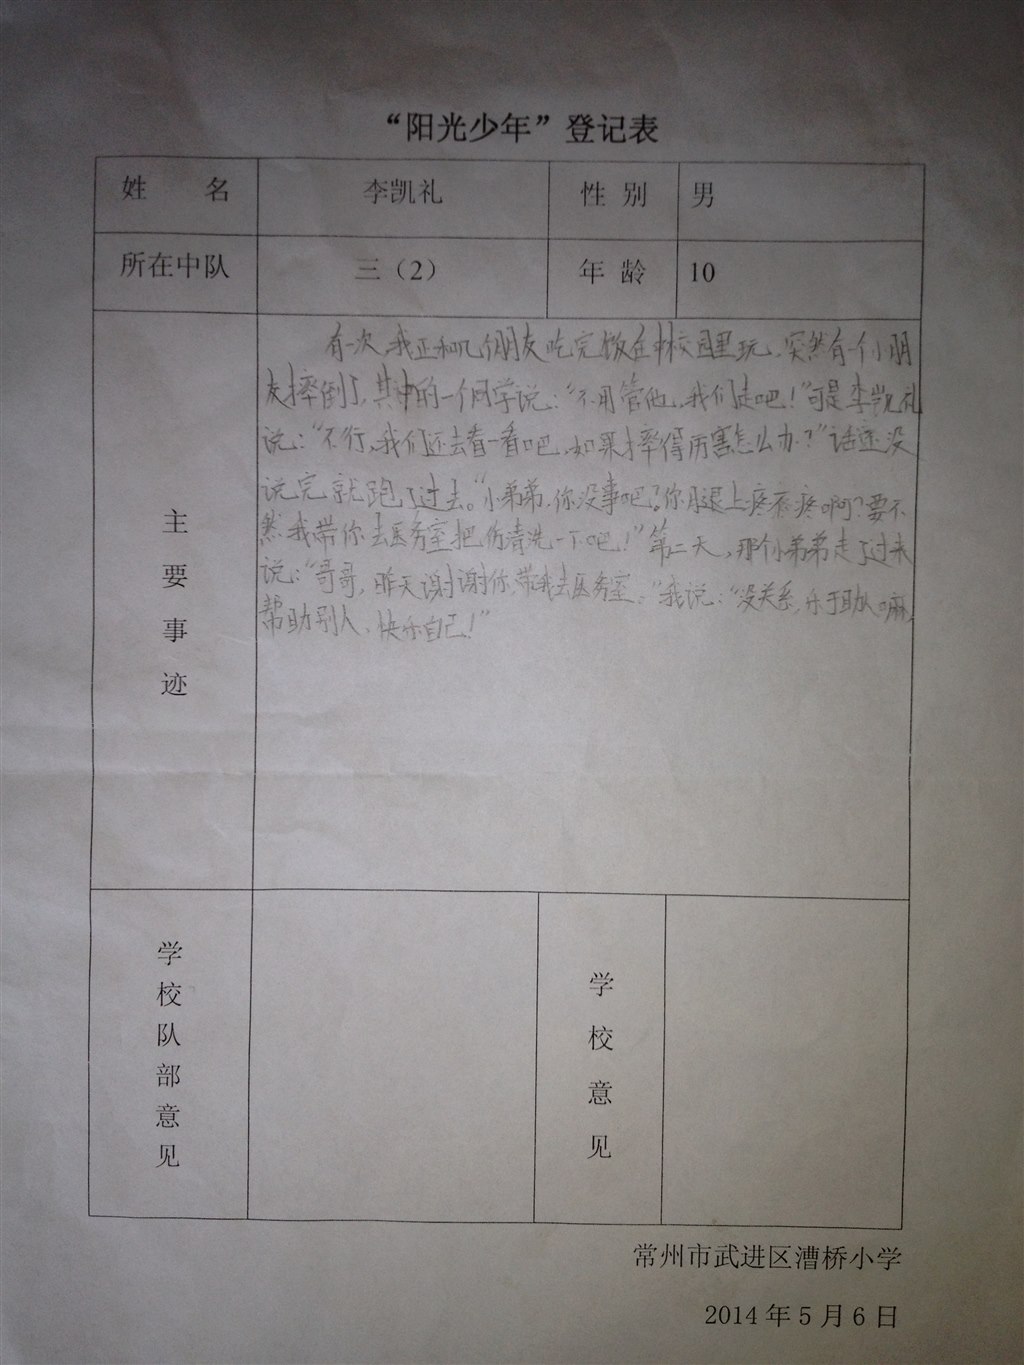 “阳光少年”登记表
姓 名 李凯礼 性 别 男
所在中队 三（2） 年 龄 10
主要事迹
有一次,我正和几个朋友吃完饭在校园里玩,突然有一个小朋
友摔倒了,其中的一个同学说：“不用管他,我们走吧！”可是李凯礼
说：“不行,我们还去看一看吧,如果摔得厉害怎么办？”话还没
说完就跑了过去。“小弟弟,你没事吧？你腿上疼不疼啊？要不
然我带你去医务室把伤清洗一下吧！”第二天,那个小弟弟走了过来
说：“哥哥,昨天谢谢你,带我去医务室。”我说：“没关系,乐于助人嘛,
帮助别人,快乐自己！”
学校队部意见
学校意见
常州市武进区漕桥小学
2014 年 5 月 6 日